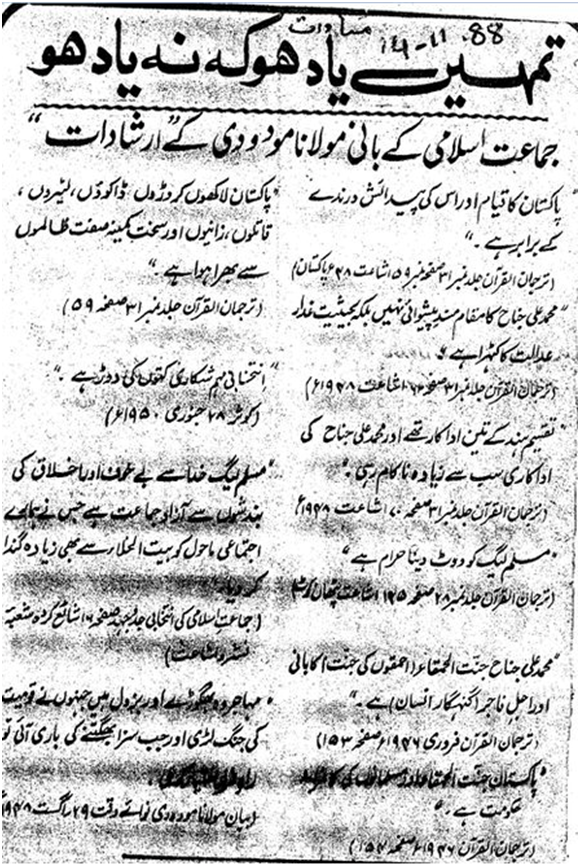 مساوات ۱۴-۱۱-88
تمہیں یاد ھو کہ نہ یاد ھو
جماعت اسلامی کے بانی مولانا مودودی کے "ارشادات"
پاکستان کا قیام اور اس کی پیدائش درندے
کے برابر ہے۔"
(ترجمان القرآن جلد نمبر ۳۱ صفحہ نمبر ۵۹ اشاعت ۴۸ء پاکستان)
"محمد علی جناح کا مقام مسند پیشوائی نہیں بلکہ بحیثیت غدار
عدالت کا کٹہرا ہے۔"
(ترجمان القرآن جلد نمبر ۳۱ صفحہ اشاعت ۱۹۴۸ء)
"تقسیم ہند کے تین اداکار تھے اور محمد علی جناح کی
اداکاری سب سے زیادہ ناکام رہی۔"
(ترجمان القرآن جلد نمبر ۳۱ صفحہ ۷۰ اشاعت ۱۹۴۸ء)
"مسلم لیگ کو ووٹ دینا حرام ہے"
(ترجمان القرآن جلد نمبر ۲۸ صفحہ ۱۲۵ اشاعت پٹھان کوٹ)
"محمد علی جناح جنّت الحمقاء (احمقوں کی جنّت) کا بانی
اور اجل فاجر (گنہگار انسان) ہے۔"
(ترجمان القرآن فروری ۱۹۴۶ء صفحہ ۱۵۳)
"پاکستان جنّت الحمقاء اور مسلمانوں کی کافرانہ
حکومت ہے۔"
(ترجمان القرآن ۱۹۴۶ء صفحہ ۱۵۴)
"پاکستان لاکھوں کروڑوں ڈاکوؤں، لٹیروں،
قاتلوں، زانیوں اور سخت کمینہ صفت ظالموں
سے بھرا ہوا ہے۔"
(ترجمان القرآن جلد نمبر ۳۱ صفحہ ۵۹)
"انتخابی مہم شکاری کتوں کی دوڑ ہے۔"
(کوثر ۲۸ جنوری ۱۹۵۰ء)
"مسلم لیگ خدا سے بے خوف اور اخلاق کی
بندشوں سے آزاد جماعت ہے جس نے ہمارے
اجتماعی ماحول کو بیت الخلاء سے بھی زیادہ گندا
کر دیا۔"
(جماعت اسلامی کی انتخابی جدوجہد صفحہ ۱۶ شائع کردہ شعبہ
نشر و اشاعت)
"مہاجر وہ بھگوڑے اور بزدل ہیں جنہوں نے قومیت
کی جنگ لڑی اور جب سزا بھگتنے کی باری آئی تو
راہ فرار
(بیان مولانا مودودی نوائے وقت ۲۹ اگست ۱۹۴۸ء)